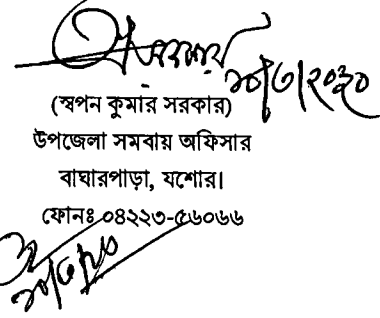 ১০/৩/২০২০
(স্বপন কুমার সরকার)
উপজেলা সমবায় অফিসার
বাঘারপাড়া, যশোর।
ফোনঃ ০৪২২৩-৫৬০৬৬
১০/৩/২০